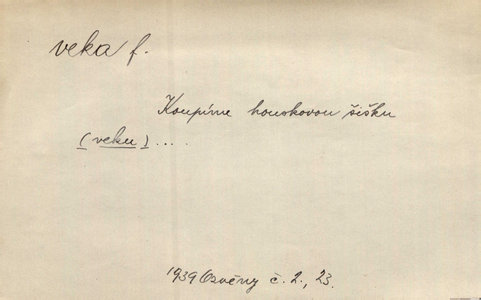 veka f.
Koupíme houskovou šišku
(veku) ....
1939 Ozvěny č. 2., 23.